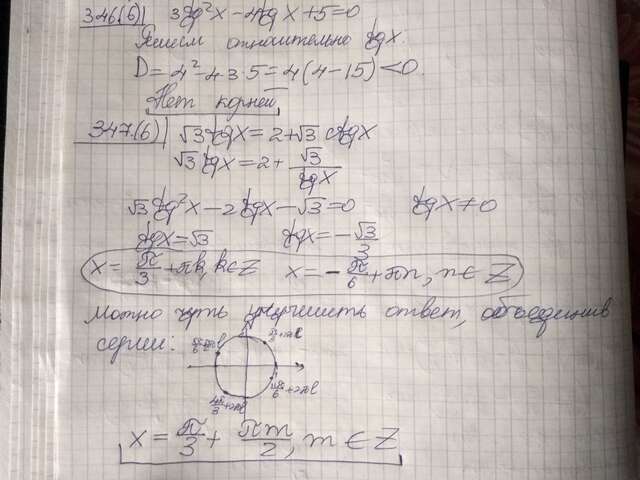 346(б) 3tg²x - 4tgx + 5 = 0
Решаем относительно tgx.
D = 4² - 4·3·5 = 4(4 - 15) < 0.
Нет корней
347.(б) √3 tgx = 2 + √3 ctgx
√3 tgx = 2 + √3/tgx
√3 tg²x - 2tgx - √3 = 0 tgx ≠ 0
tgx = √3 tgx = -√3/3
x = π/3 + πk, k ∈ Z x = -π/6 + πn, n ∈ Z
Можно чуть улучшить ответ, объединив
серии:
4π/3 + 2πl
x = π/3 + πm/2, m ∈ Z